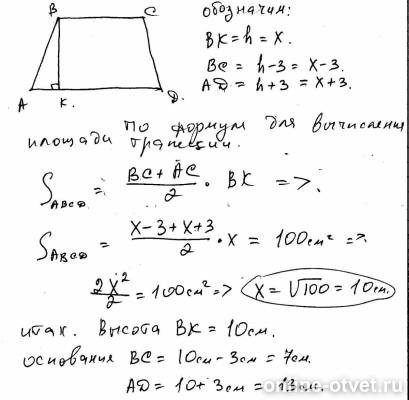 обозначим:
B C
BK = h = x.
BC = h-3 = x-3.
AD = h+3 = x+3.
A K. D.
по формул для вычисления
площади трапеции.
S_ABCD = (BC + AC)/2 · BK =>.
S_ABCD = (x-3+x+3)/2 · x = 100см² =>.
2x²/2 = 100см² => x = √100 = 10см.
итак. Высота BK = 10см.
основания BC = 10см - 3см = 7см.
AD = 10 + 3см = 13см.
online-otvet.ru